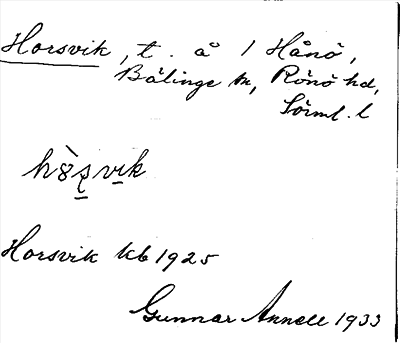 Horsvik, t. å 1 Hånö,
Bälinge sn, Rönö hd,
Sörml. l
Horsvik kb 1925
Gunnar Annell 1933